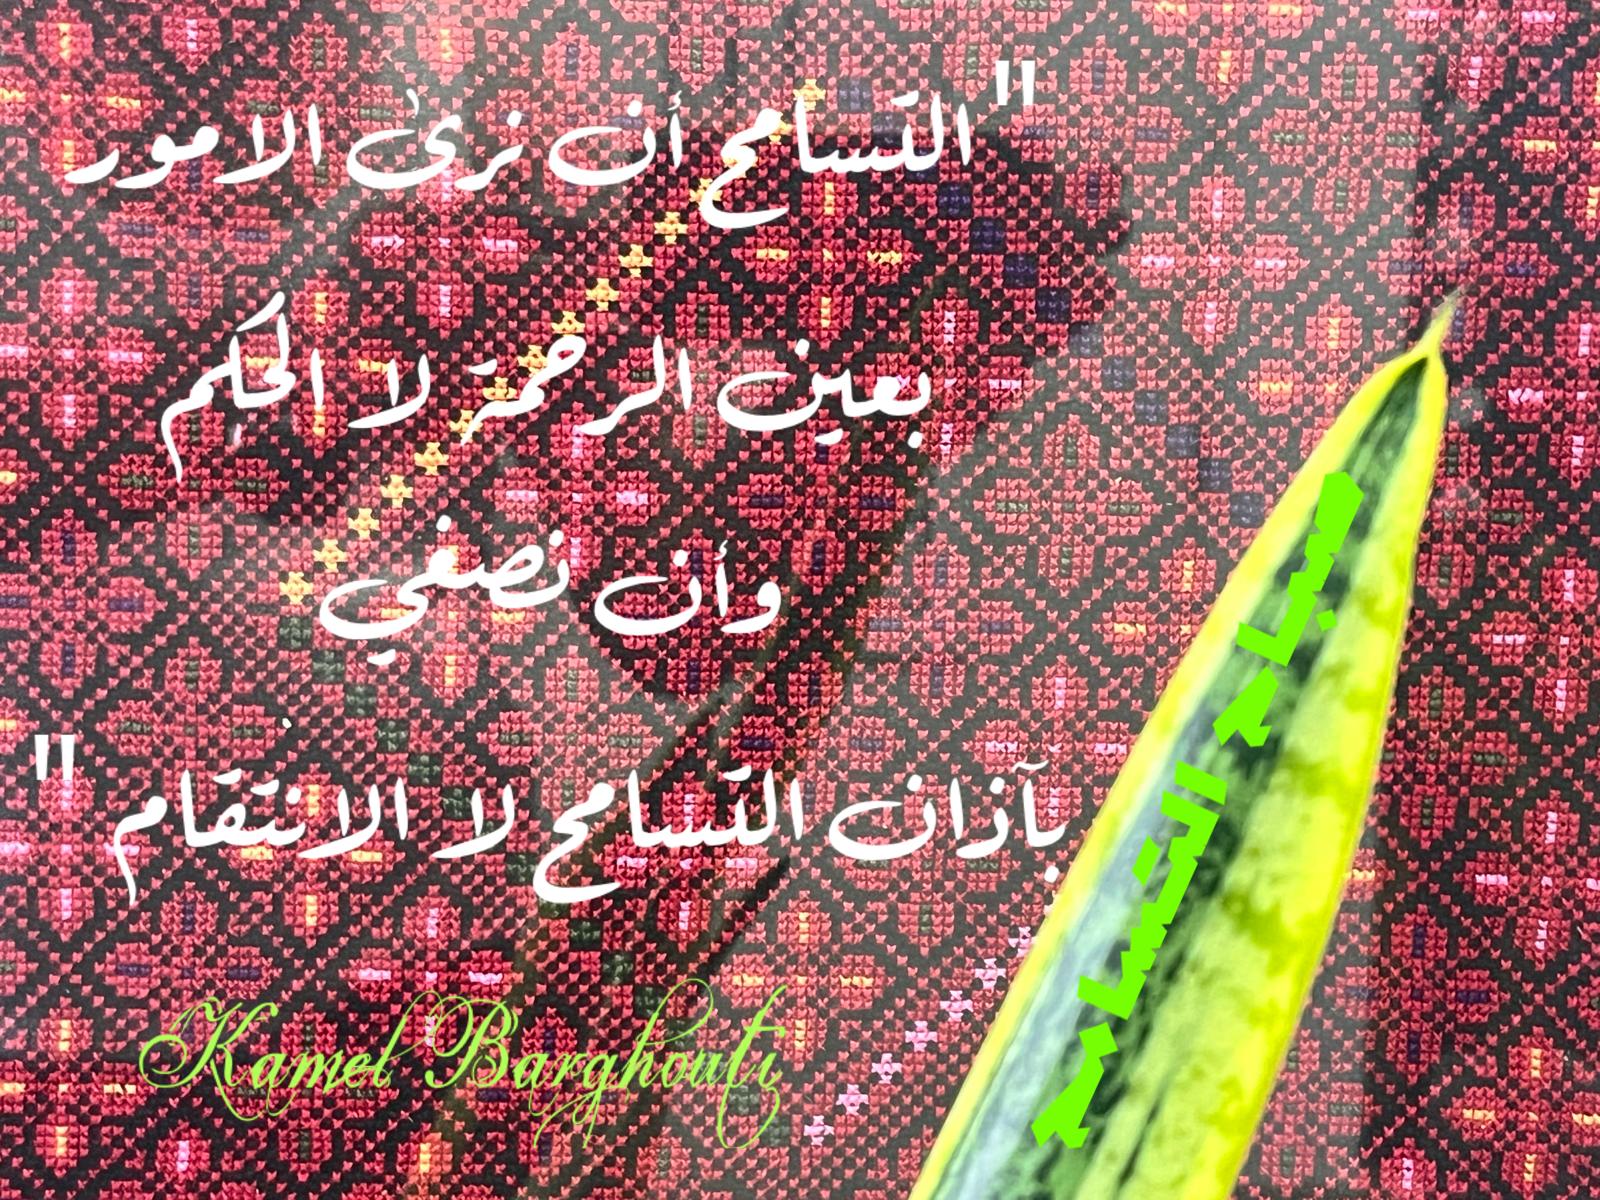 "التسامح أن نرى الامور
بعين الرحمة لا الحكم
وأن نصغي
بآذان التسامح لا الانتقام"
صباح التسامح
Kamel Barghouti